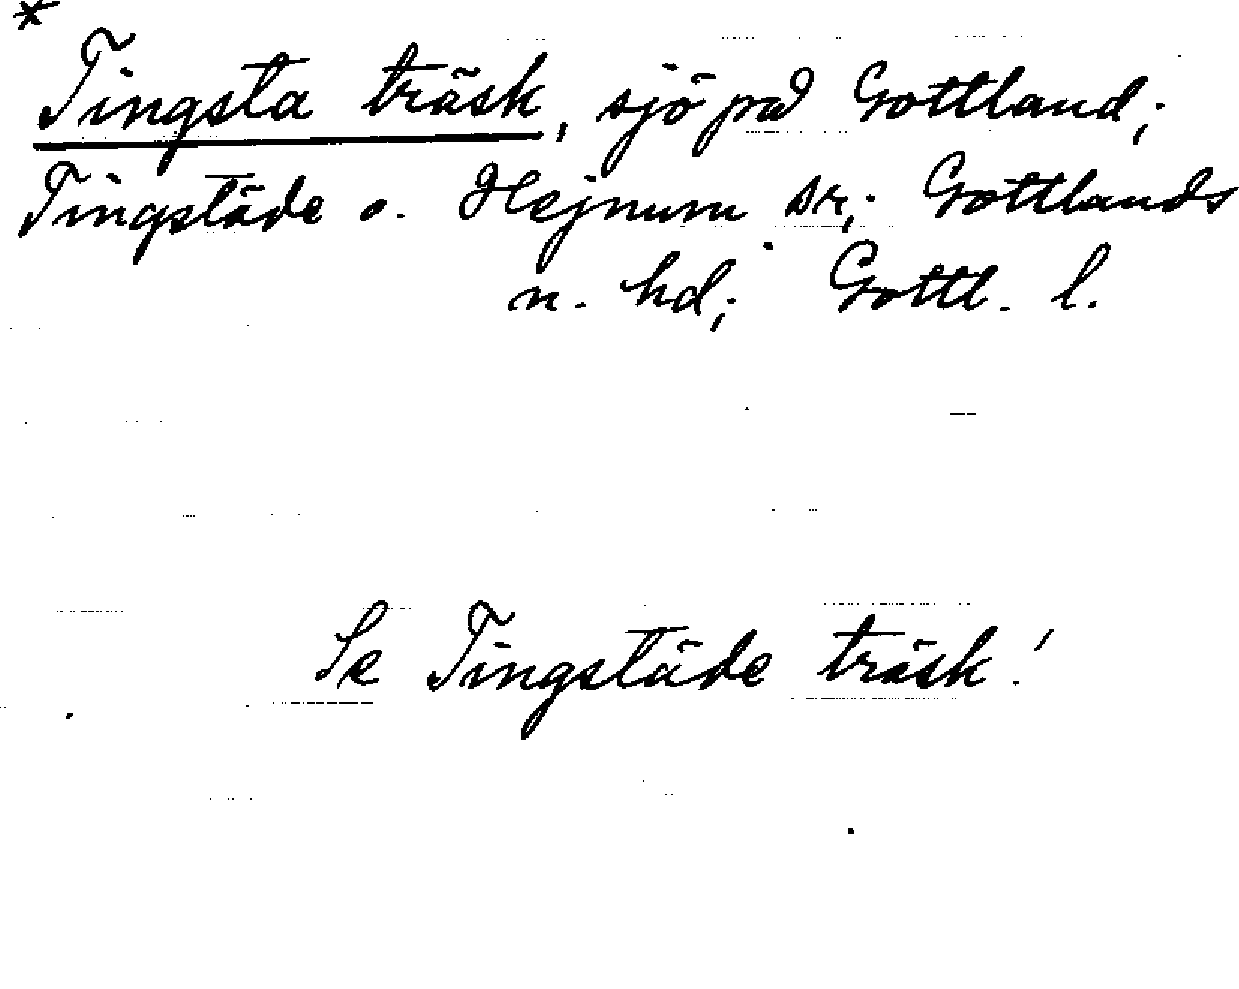 *
Tingsta träsk, sjö på Gottland;
Tingstäde o. Hejnum sr; Gottlands
n. hd; Gottl. l.
Se Tingstäde träsk!